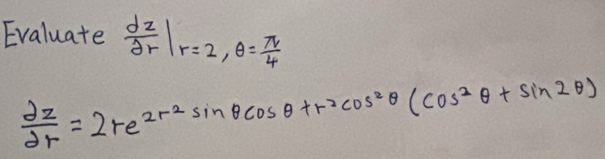 Evaluate dz/∂r |r=2, θ=π/4
∂z/∂r = 2re^2r² sin θ cos θ + r² cos² θ (cos² θ + sin 2θ)